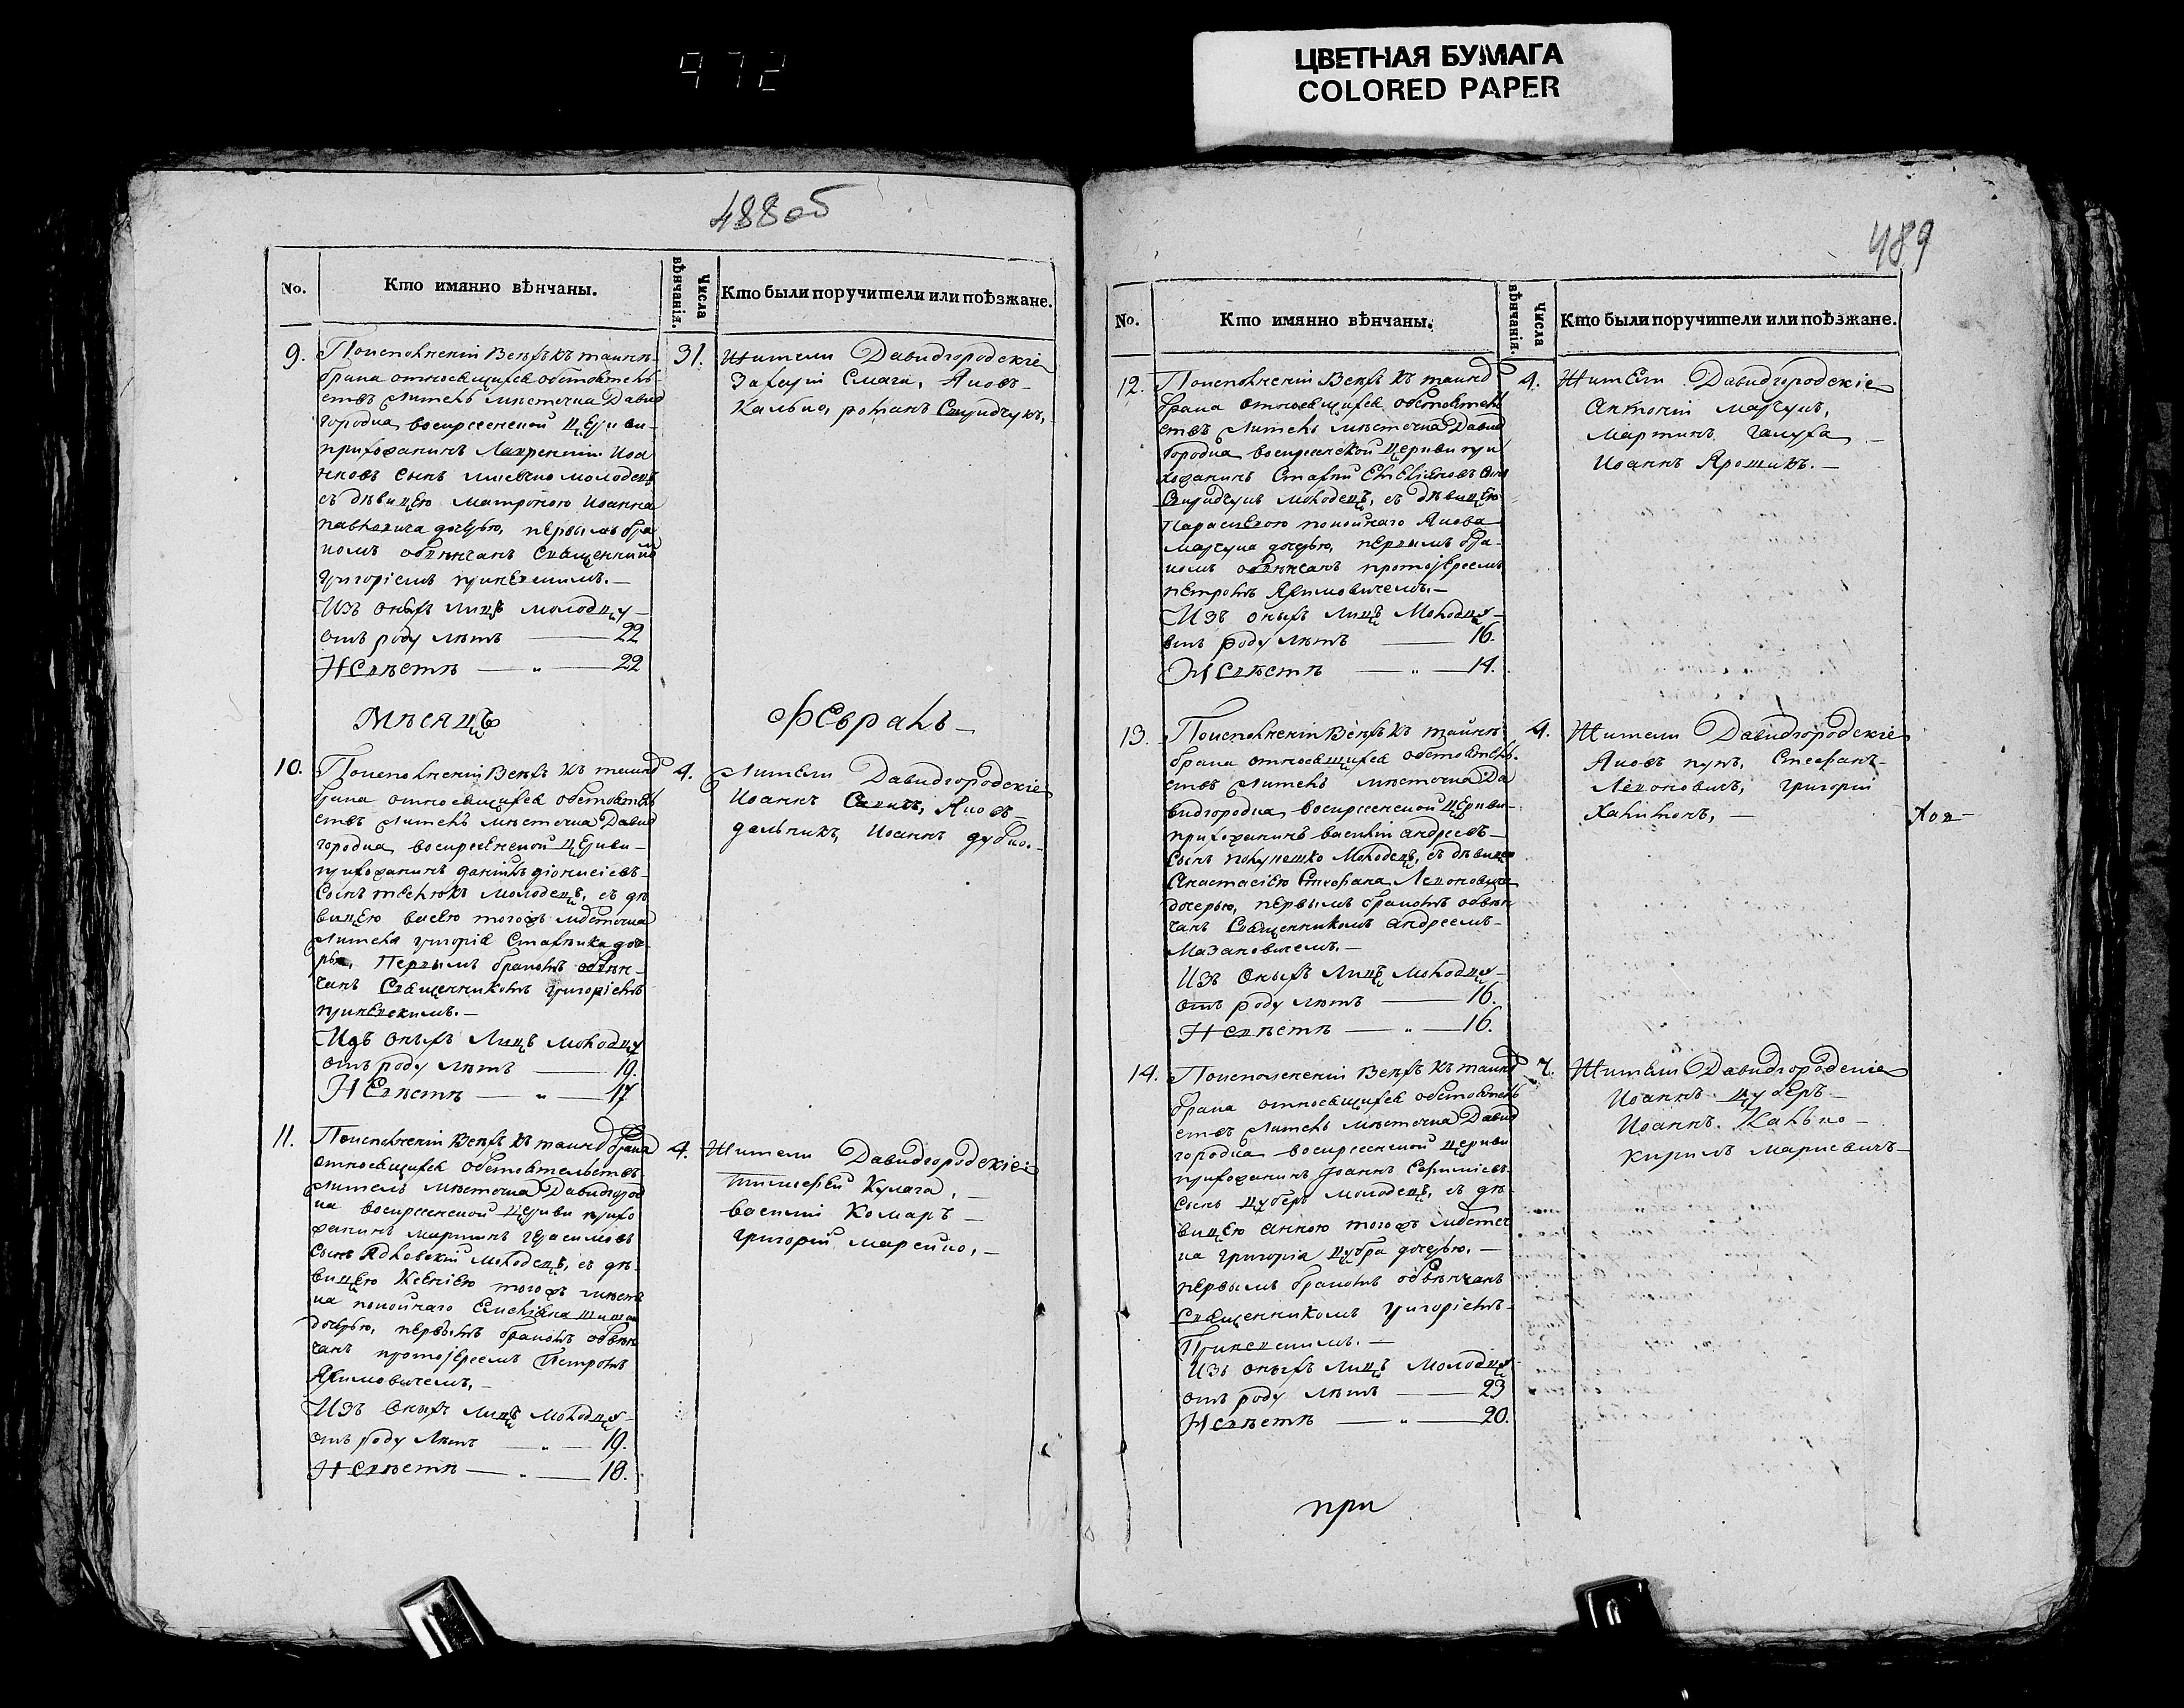 972
ЦВЕТНАЯ БУМАГА
COLORED PAPER
488об
No.
Кто имянно вѣнчаны.
Числа вѣнчанія.
Кто были поручители или поѣзжане.
9.
По исполненіи всѣхъ къ таинѣ
брака относящихся обстоятель-
ствъ житель мѣстечка Давид
городка воскресенской церкви
прихожанинъ Лаврентій Иоа
нновъ сынъ молодецъ
съ дѣвицею Матроною Иоанна
дочерью, первымъ бра
комъ обвѣнчанъ священник
Григоріемъ
Изъ оныхъ лицъ молодцу
отъ роду лѣтъ — 22
Невѣстѣ — „ — 22
31.
Жители Давидгородскіе
Захарій Смага, Яковъ
Калько, романъ Свиридчукъ,
Мѣсяцъ
Февраль
10.
По исполненіи всѣхъ къ таинѣ
брака относящихся обстоятель
ствъ житель мѣстечка Давид
городка воскресенской церкви
прихожанинъ даніилъ діонисіевъ
сынъ молодецъ, съ дѣ
вицею тогожъ мѣстечка
жителя григорія доче
рью, первымъ бракомъ обвѣн-
чанъ Священникомъ григоріемъ
Изъ оныхъ лицъ молодцу
отъ роду лѣтъ — 19.
Невѣстѣ — „ — 17
4.
Жители Давидгородскіе
Иоаннъ Яковъ
дольникъ, Иоаннъ дубко.
11.
По исполненіи всѣхъ къ таинѣ брака
относящихся обстоятельствъ
житель мѣстечка Давидгород
ка воскресенской церкви прихо
жанинъ мартинъ герасимовъ
сынъ молодецъ, съ дѣ-
вицею Ксеніею тогожъ мѣстеч
ка покойнаго
дочерью, первымъ бракомъ обвѣн
чанъ протоіереемъ Петромъ
Якимовичемъ.
Изъ оныхъ лицъ молодцу
отъ роду лѣтъ — „ — 19.
Невѣстѣ — „ — 18.
4.
Жители Давидгородскіе
Тимофей Кулага,
василій Комаръ
григорій марейко,
489
No.
Кто имянно вѣнчаны.
Числа вѣнчанія.
Кто были поручители или поѣзжане.
12.
По исполненіи всѣхъ къ таинѣ
брака относящихся обстоятель
ствъ житель мѣстечка Давид
городка воскресенской церкви при
хожанинъ сынъ
Свиридчукъ молодецъ, съ дѣвицею
Параскевою покойнаго Якова
марчука дочерью, первымъ бра-
комъ обвѣнчанъ протоіереемъ
петромъ Якимовичемъ.
Изъ оныхъ лицъ молодцу
отъ роду лѣтъ — 16.
Невѣстѣ — „ — 14.
4.
Жители Давидгородскіе
антоній марчукъ,
мартинъ галуха
Иоаннъ Ярошикъ.
13.
По исполненіи всѣхъ къ таинѣ
брака относящихся обстоятель-
ствъ житель мѣстечка Да
видгородка воскресенской церкви
прихожанинъ василій андреевъ
сынъ молодецъ, съ дѣвицею
анастасіею Стефана Леоновича
дочерью, первымъ бракомъ обвѣн
чанъ Священникомъ андреемъ
мазановичемъ.
Изъ оныхъ лицъ молодцу
отъ роду лѣтъ — 16.
Невѣстѣ — „ — 16.
4.
Жители Давидгородскіе
Яковъ Стефанъ
Леоновичъ, григорій
Халимонъ,
14.
По исполненіи всѣхъ къ таинѣ
брака относящихся обстоятель
ствъ житель мѣстечка Давид
городка воскресенской церкви
прихожанинъ Иоаннъ Ефиміевъ
сынъ Цуберъ молодецъ, съ дѣ-
вицею анною тогожъ мѣстеч
ка григорія Цубра дочерью,
первымъ бракомъ обвѣнчанъ
Священникомъ григоріемъ
Изъ оныхъ лицъ молодцу
отъ роду лѣтъ — 23
Невѣстѣ — „ — 20.
7.
Жители Давидгородскіе
Иоаннъ Цуберъ
Иоаннъ Калько
кирилъ маркевичъ
при